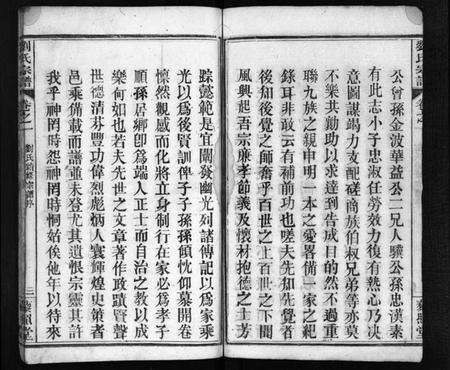 公曾孫金波華益公二兄人驥公孫忠漢素
有此志小子忠淑任勞效力復有熱心乃決
意圖謀竭力支配磋商族伯叔兄弟等亦莫
不樂共勷助以求達到告成目的然不過重
聯九族之親申明一本之愛畧備一家之紀
錄耳非敢云有補前功也嗟夫先知先覺者
後知後覺之師奮乎百世之上百世之下聞
風興起吾宗廉孝節義及懷材抱德之士芳
踪懿範是宜闡發幽光列諸傳記以爲家乘
光以爲後賢訓俾子子孫孫頫忱仰慕開卷
懔然觀感而化將立身制行在家必爲孝子
順孫居鄉卽爲端人正士而自治之教以成
樂何如也若夫先世之文章著作政蹟賢聲
世德清芬豐功偉烈彪炳人寰輝煌史策者
邑乘備載而譜並未登尤其遺恨宗靈其許
我乎神罔時怨神罔時恫姑俟他年以待來
劉氏宗譜
卷之一
三